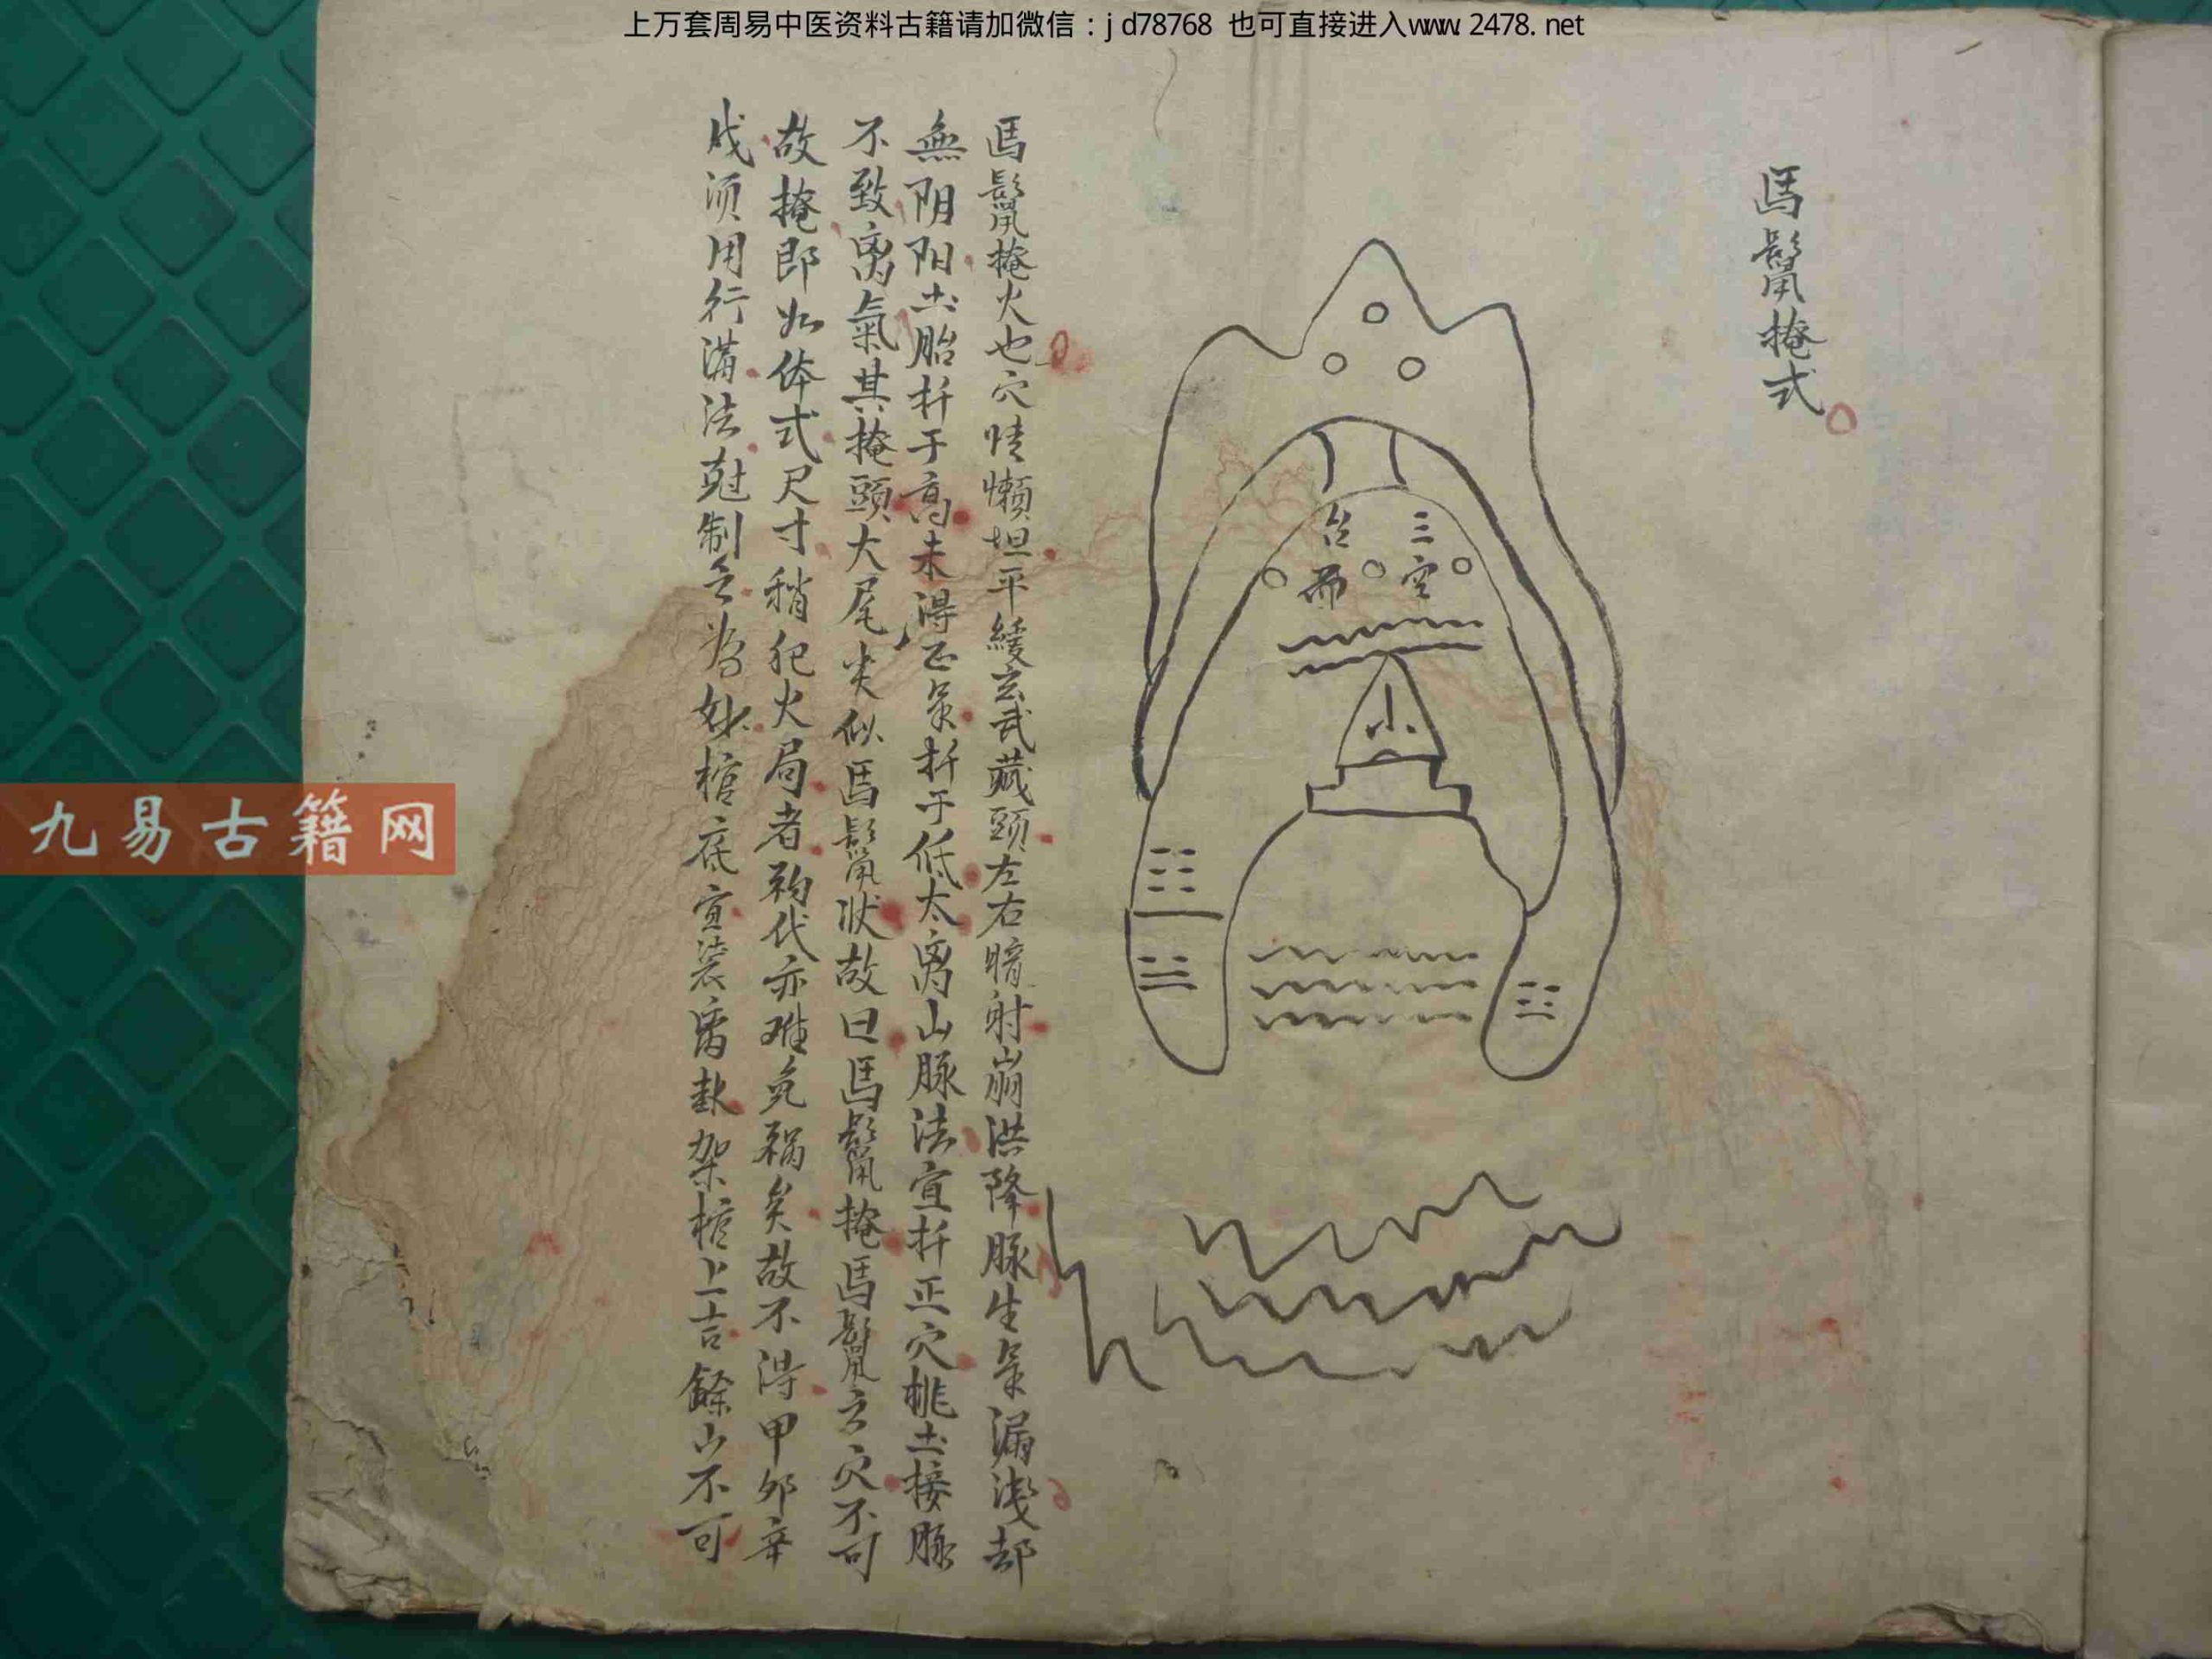 上万套周易中医资料古籍请加微信：jd78768 也可直接进入www.2478.net
馬鬣掩式
三台
空而
小
馬鬣掩火也穴懶坦平緩玄武藏頭左右暗射崩洪降脉生氣漏淺却
無阴阳土胎扦于高未得正氣扦于低太离山脉法宜扦正穴挑土接脉
不致离氣其掩頭大尾尖似馬鬣狀故曰馬鬣掩馬鬣之穴不可
故掩即如体式尺寸稍犯火局者代亦难免禍矣故不得甲卯辛
戌须用行溝法尅制之為妙棺底宜装离卦架棺上吉餘山不可
九易古籍网